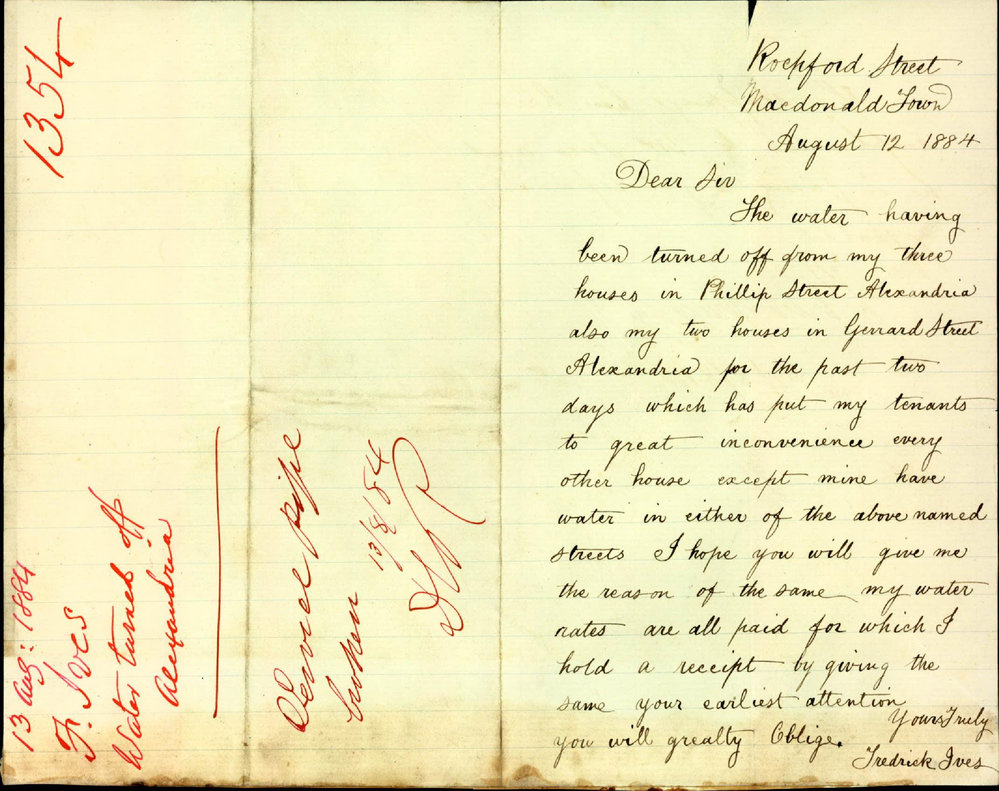 Rochford Street
Macdonald Town
August 12 1884
Dear Sir
The water having
been turned off from my three
houses in Phillip Street Alexandria
also my two houses in Gerrard Street
Alexandria for the past two
days which has put my tenants
to great inconvenience every
other house except mine have
water in either of the above named
streets I hope you will give me
the reason of the same my water
rates are all paid for which I
hold a receipt by giving the
same your earliest attention
you will grealty Oblige.
Yours Truly
Fredrick Ives
1354
13 Aug: 1884
F. Ives
Water turned off
Alexandria
Service pipe
broken 13/8/84